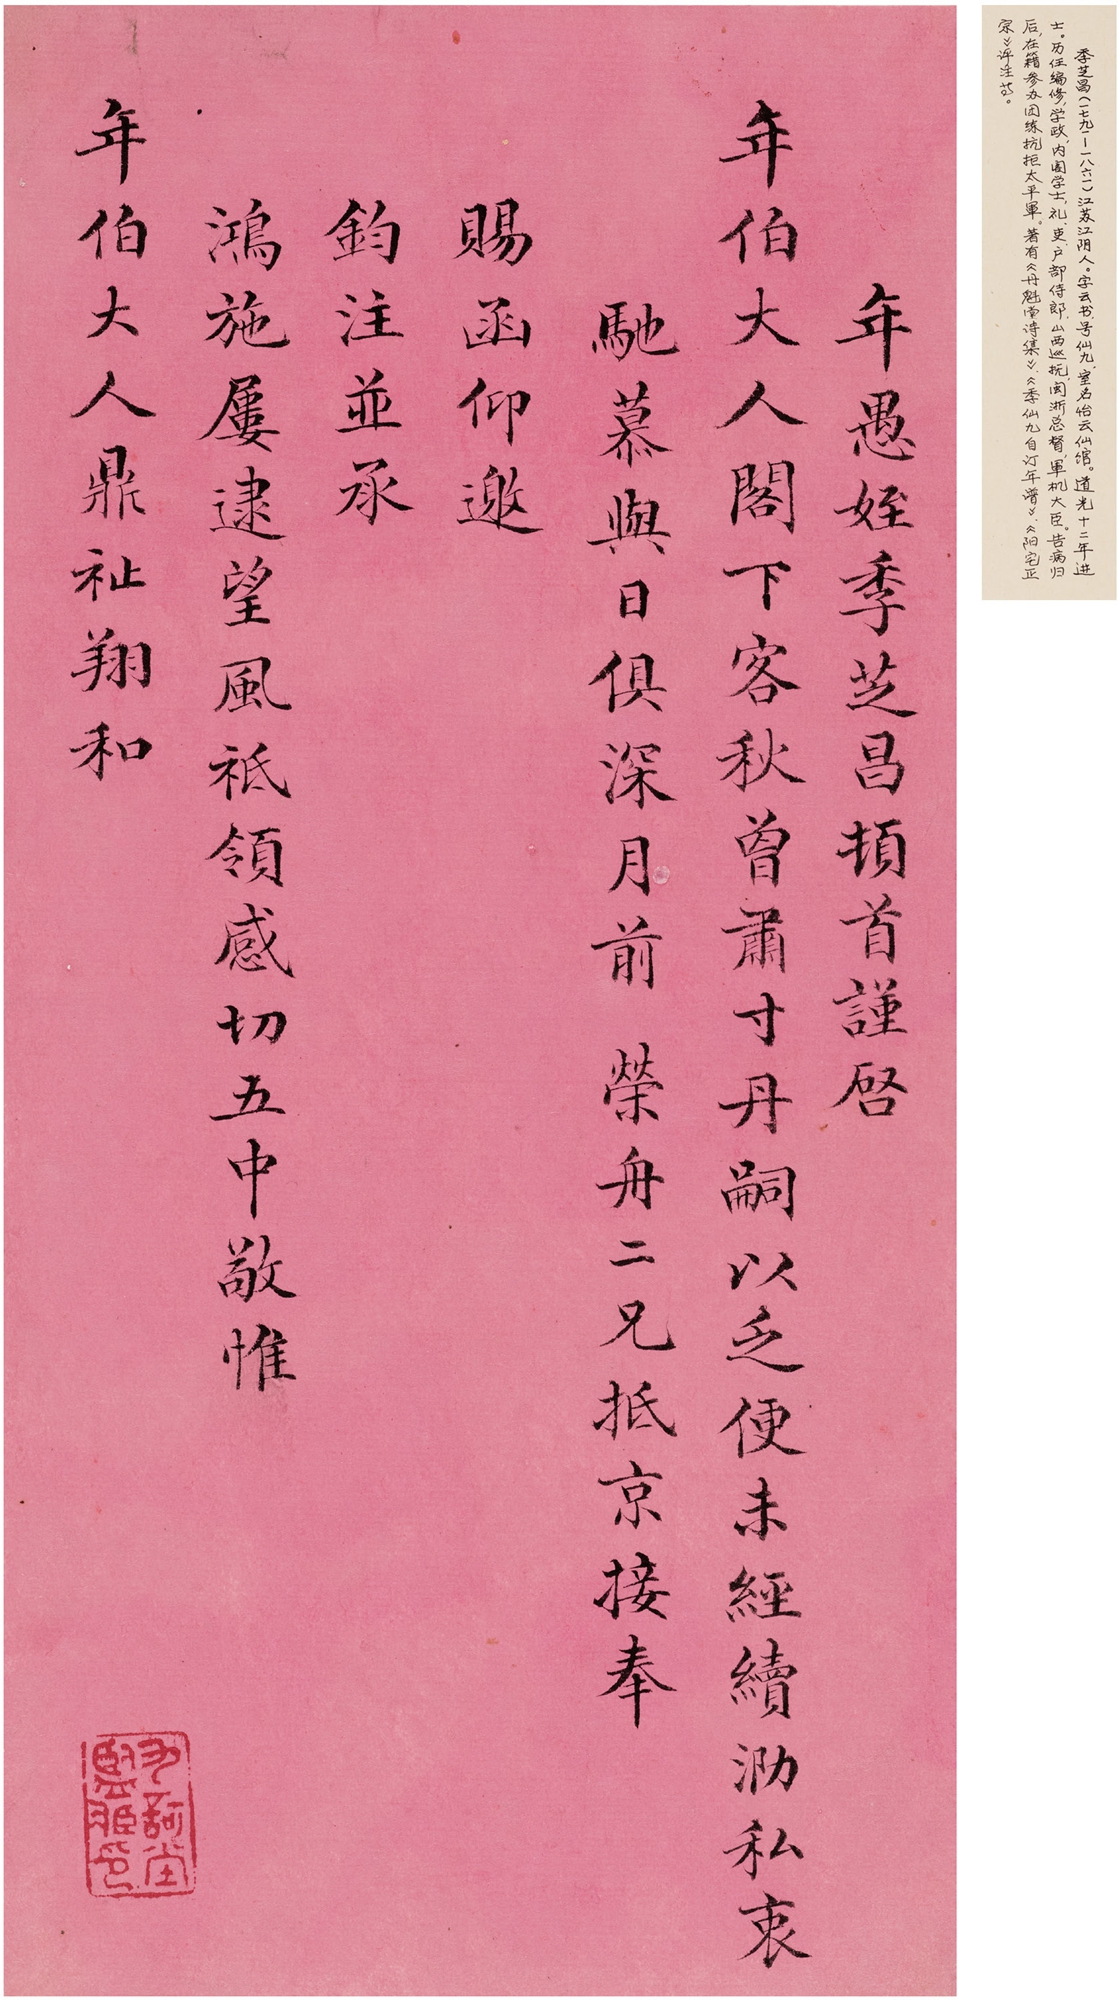 季芝昌(一七九一—一八六一)江苏江阴人。字云书,号仙九,室名怡云仙馆。道光十二年进
士。历任编修,学政,内阁学士,礼、吏、户部侍郎,山西巡抚,闽浙总督,軍机大臣。告病归
后,在籍参办团练抗拒太平軍。著有《丹魁堂诗集》、《季仙九自订年谱》、《阳宅正
宗》评注等。
年愚姪季芝昌頓首謹啓
年伯大人閣下客秋曾肅寸丹嗣以乏便未經續泐私衷
馳慕與日俱深月前 榮舟二兄抵京接奉
賜函仰邀
鈞注並承
鴻施屢逮望風祗領感切五中敬惟
年伯大人鼎祉翔和